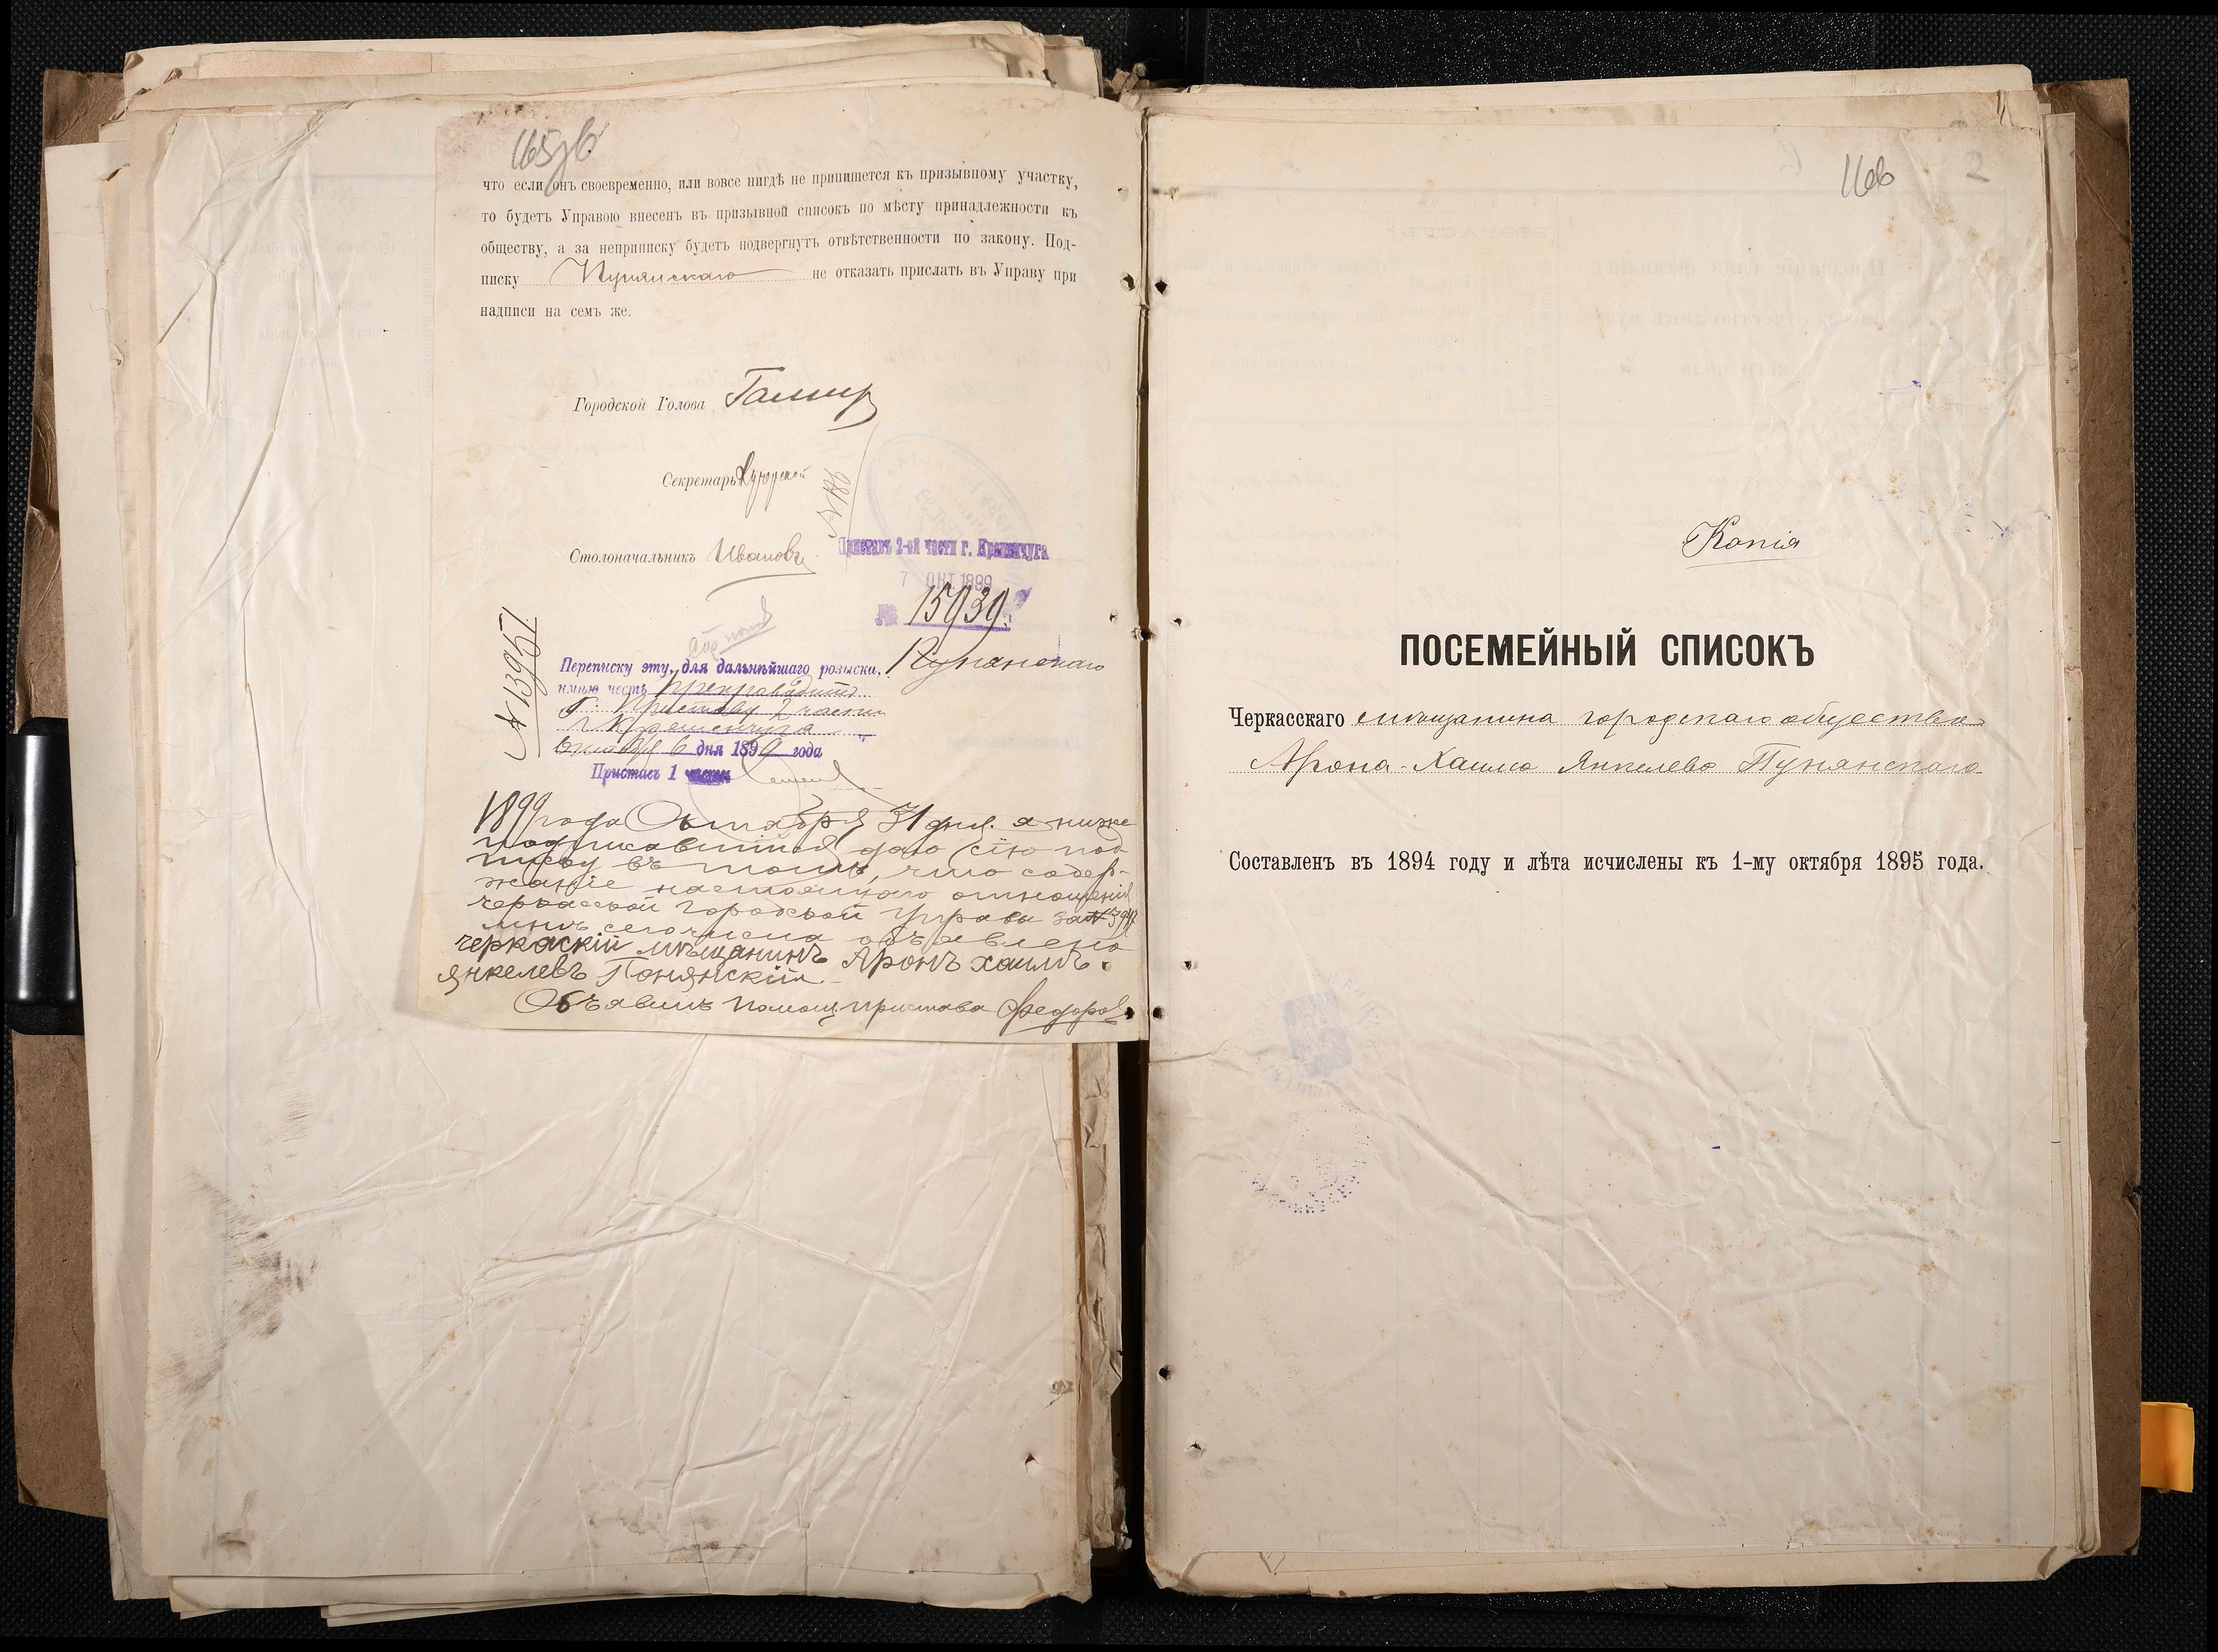 165об
что если онъ своевременно, или вовсе нигдѣ не припишется къ призывному участку,
то будетъ Управою внесенъ въ призывной списокъ по мѣсту принадлежности къ
обществу, а за неприписку будетъ подвергнутъ отвѣтственности по закону. Под-
писку Пунянскаго не отказать прислать въ Управу при
надписи на семъ же.
Городской Голова
Секретарь
Столоначальникъ Ивановъ
Приставъ 2-ой части г. Кременчуга
7 ОКТ. 1899
№ 15939
№ 13957
Переписку эту, для дальнѣйшаго розыска, Пунянскаго
имѣю честь препроводить
Г. Приставу 2 части
г. Кременчуга
Октября 6 дня 1899 года
Приставъ 1 части
1899 года Октября 31 дня. я ниже
подписавшійся даю сію под
писку въ томъ, что содер-
жаніе настоящаго отношенія
черкасской городской Управы за №
мнѣ сего числа объявлено
черкаскій мѣщанинъ Аронъ хаимъ
янкелевъ Понянскій.
Объявилъ Помощ. пристава Федоровъ
166
2
Копія
ПОСЕМЕЙНЫЙ СПИСОКЪ
Черкасскаго мѣщанина городскаго общества
Арона-Хаима Янкелева Пунянскаго
Составленъ въ 1894 году и лѣта исчислены къ 1-му октября 1895 года.